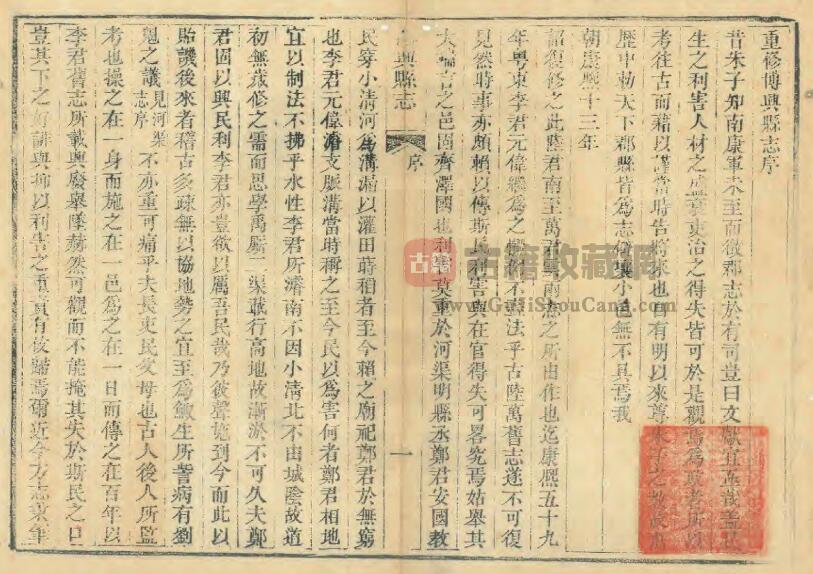 重修博興縣志序
昔朱子知南康軍未至而徵郡志於有司豈曰文獻宜哉蓋民
生之利害人材之盛衰吏治之得失皆可於是觀焉為政者所以
考往古而藉以謹當時告將來也自有明以來尊朱子之教故
歷中勅天下郡縣皆為志僻壤小邑無不具焉我
朝康熙十三年
詔復修之此陸君南至萬君之所由作也迄康熙五十九
年粵東李君元偉繼為之不法乎古陸萬舊志遂不可復
見然時事亦頗賴以傳斯民利害與在官得失可畧究焉姑舉其
大端言之邑固齊澤國也利害莫重於河渠明縣丞鄭君安國教
博興縣志 序 一
民穿小清河為溝洫以灌田蒔稻者至今賴之廟祀鄭君於無窮
也李君元偉濬支脈溝當時稱之至今民以為害何者鄭君相地
宜以制法不拂乎水性李君所濬南不因小清北不由城陰故道
初無歲修之需而思學禹廝二渠載行高地故漸淤不可久夫鄭
君固以興民利李君亦豈欲以厲吾民哉乃彼聲施到今而此以
貽譏後來者稽古多疎無以協地勢之宜至為敏生所訾病有劉
之議見河渠志序不亦重可痛乎夫長吏民父母也古人後人所監
考也操之在一身而施之在一邑為之在一日而傳之在百年以
李君舊志所載興廢舉墜赫然可觀而不能掩其失於斯民之口
豈其下之好誹與抑以利害之重責有攸歸焉爾近今方志業
古籍收藏网
www.GuJiShouCang.com